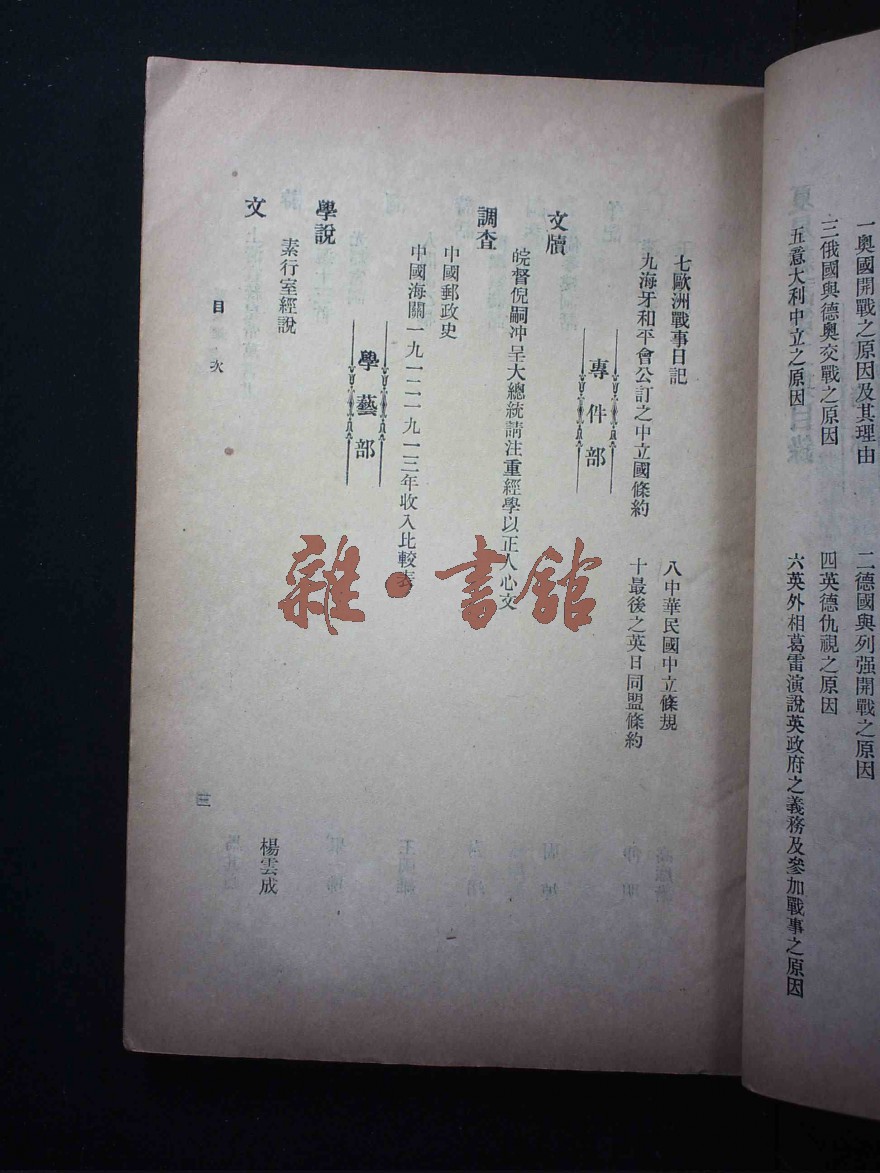 一奧國開戰之原因及其理由
二德國與列强開戰之原因
三俄國與德奧交戰之原因
四英德仇視之原因
五意大利中立之原因
六英外相葛雷演說英政府之義務及參加戰事之原因
七歐洲戰事日記
八中華民國中立條規
九海牙和平會公訂之中立國條約
十最後之英日同盟條約
專件部
文牘
皖督倪嗣冲呈大總統請注重經學以正人心文
調查
中國郵政史
中國海關一九一二一九一三年收入比較表
學藝部
學說
素行室經說
楊雲成
文
目次
雜·書館